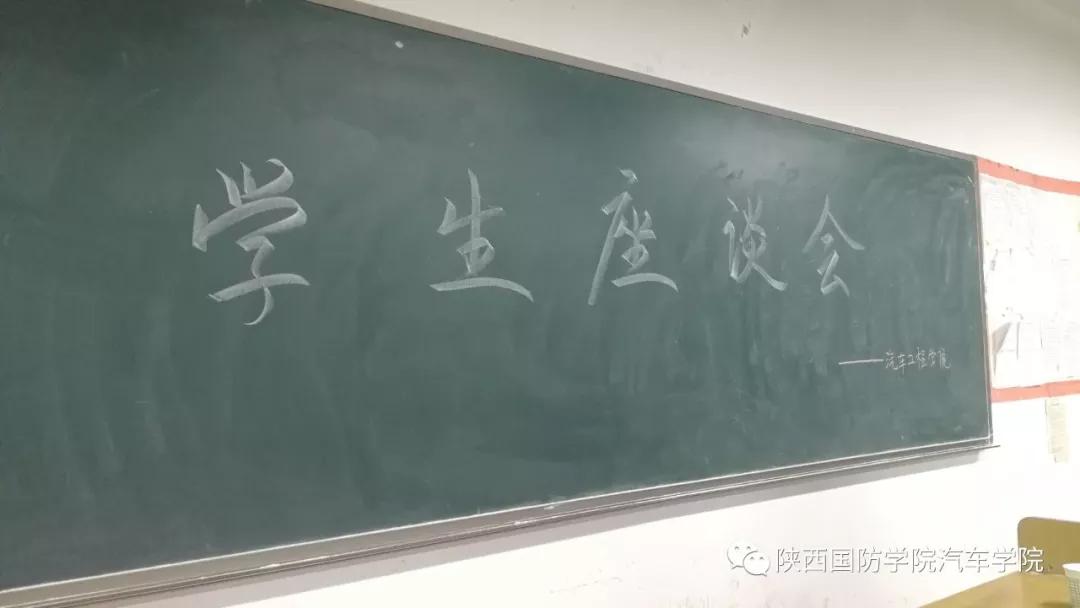 学生座谈会
——汽车工程学院
陕西国防学院汽车学院